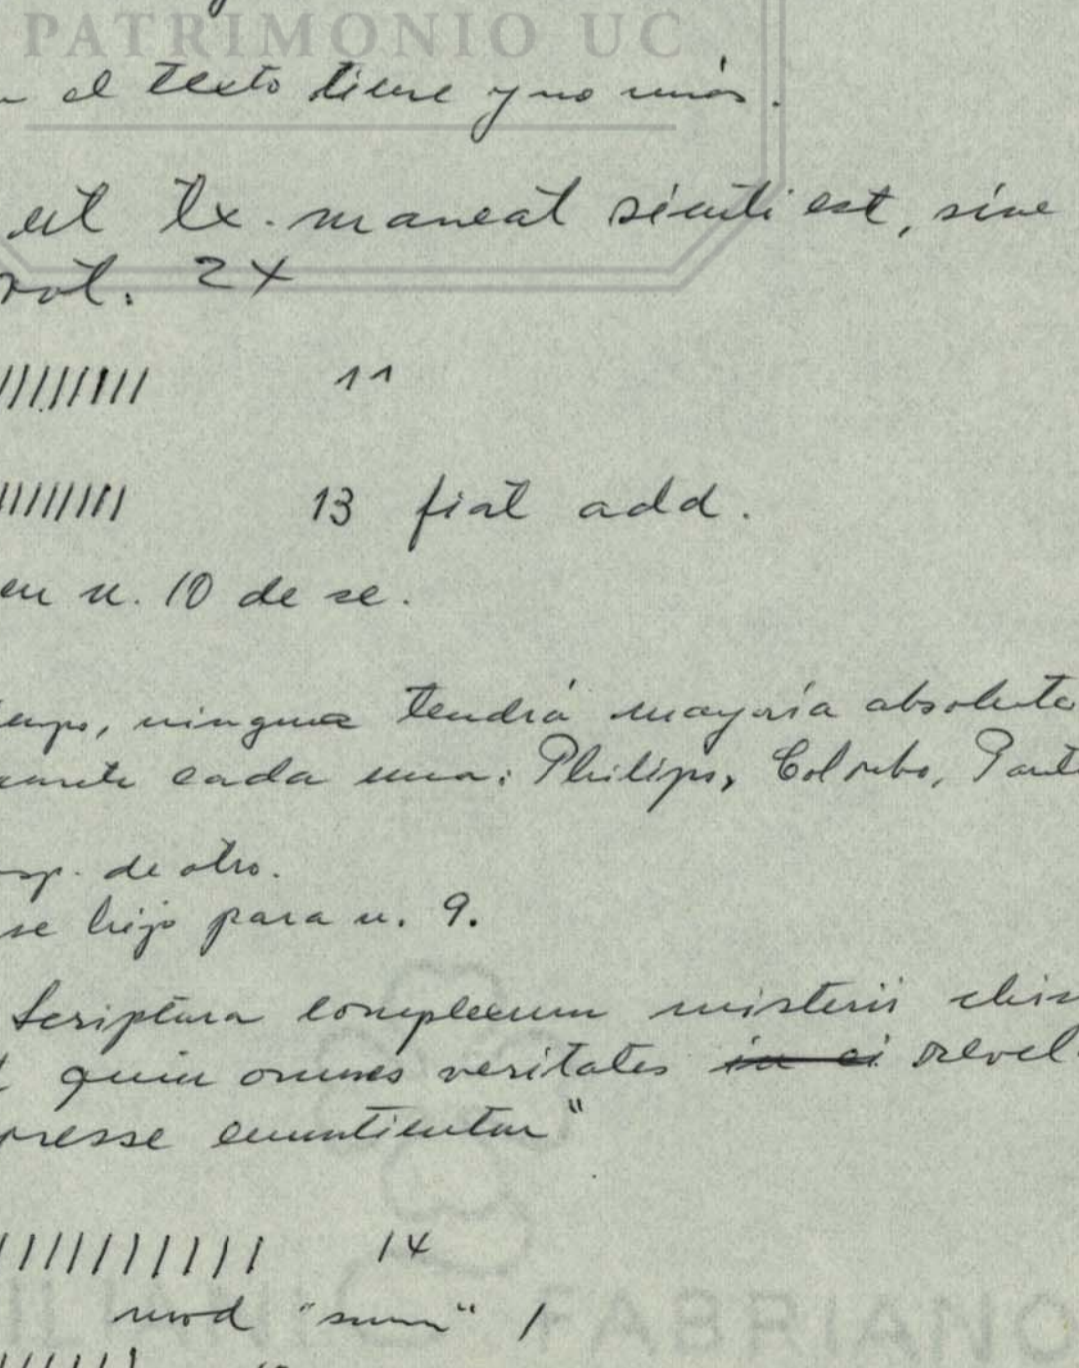 PATRIMONIO UC
el texto tiene y no
ut tx. maneat sicuti est, sive
24
11
13 fiat add.
en n. 10 de se.
ninguna tendrá mayoría absoluta
cada una: Philips, Colombo,
de otro.
se hijo para n. 9.
Scriptura complexum misterii
quin omnes veritates in ei revel.
enuntientur"
14
mod "sum" /
FABRIANO